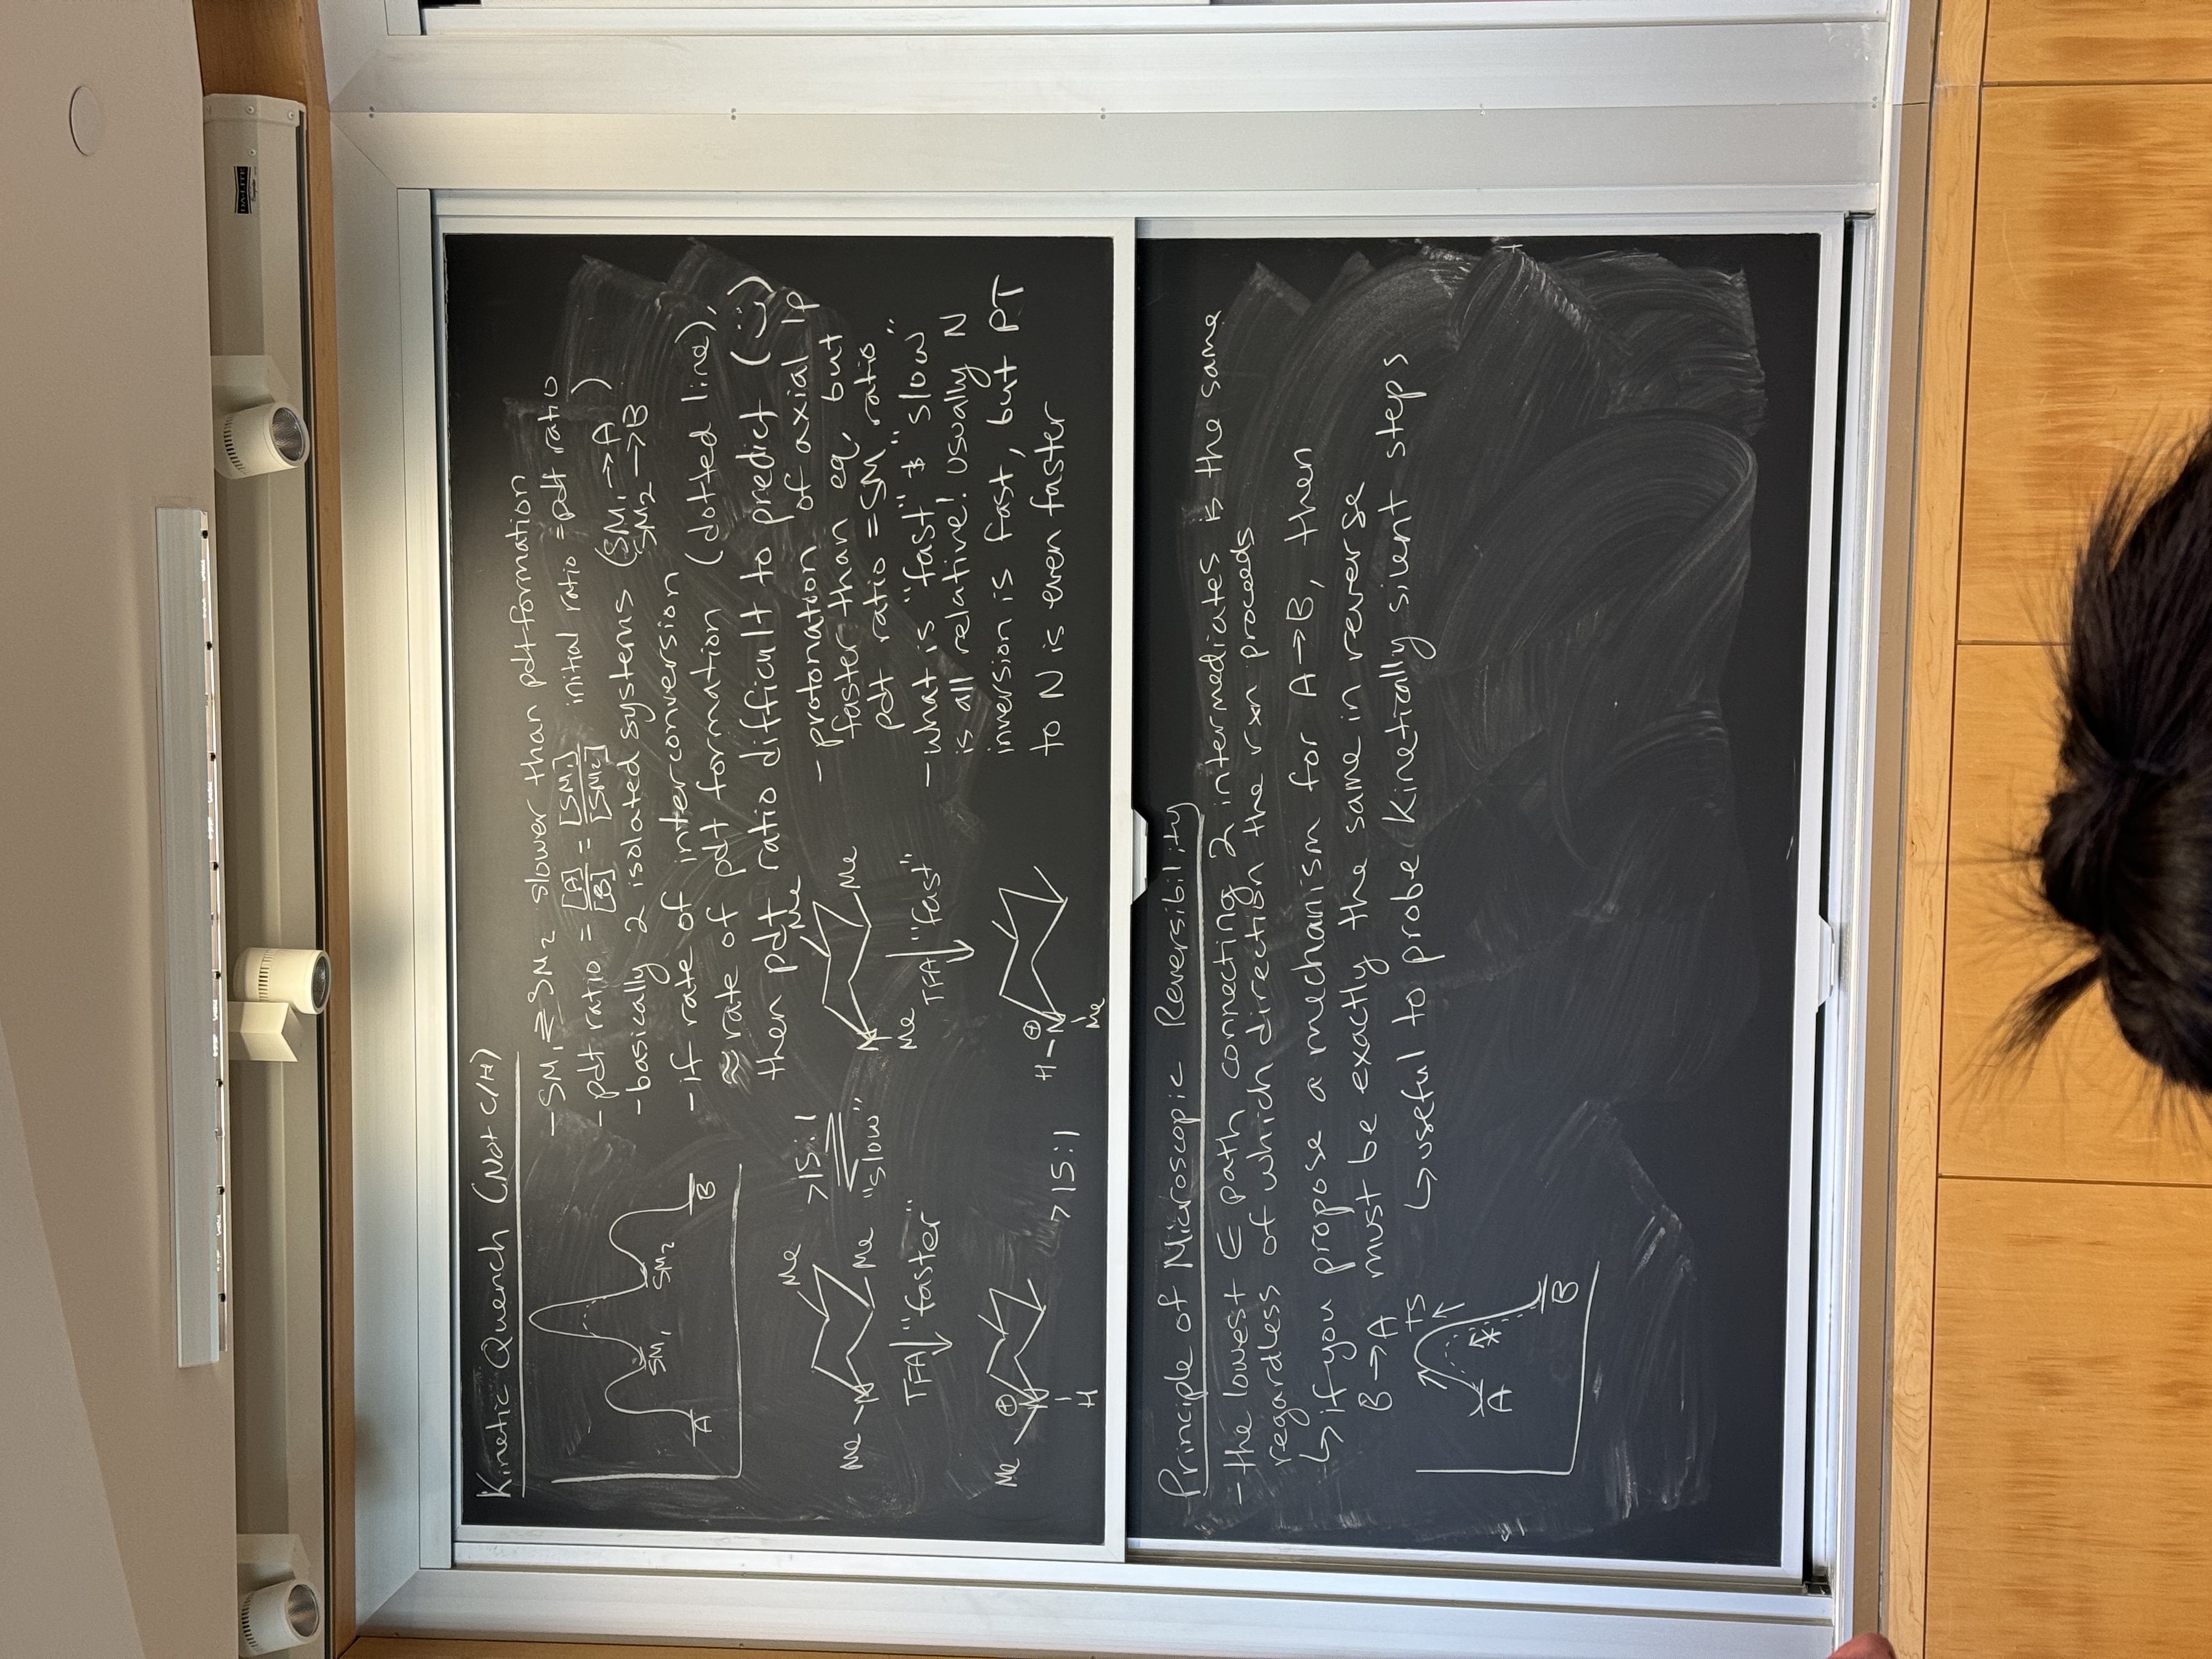 DA-LITE
Kinetic Quench (Not C/H)
- SM₁ ⇌ SM₂ slower than pdt formation
- pdt ratio = [A]/[B] = [SM₁]/[SM₂] initial ratio = pdt ratio
- basically 2 isolated systems (SM₁ → A
SM₂ → B)
- if rate of interconversion
≈ rate of pdt formation (dotted line),
then pdt ratio difficult to predict (:))
SM₁
SM₂
A
B
Me
Me
N
Me
>15:1
"slow"
Me
Me
N
Me
TFA "faster"
TFA "fast"
Me
⊕
N
H
>15:1
H
⊕
N
Me
- protonation of axial lp
faster than eq, but
pdt ratio = SM ratio
- what is "fast" & "slow"
is all relative! usually N
inversion is fast, but PT
to N is even faster
Principle of Microscopic Reversibility
- the lowest E path connecting 2 intermediates is the same
regardless of which direction the rxn proceeds
↳ if you propose a mechanism for A → B, then
B → A must be exactly the same in reverse
↳ useful to probe kinetically silent steps
TS
A
B